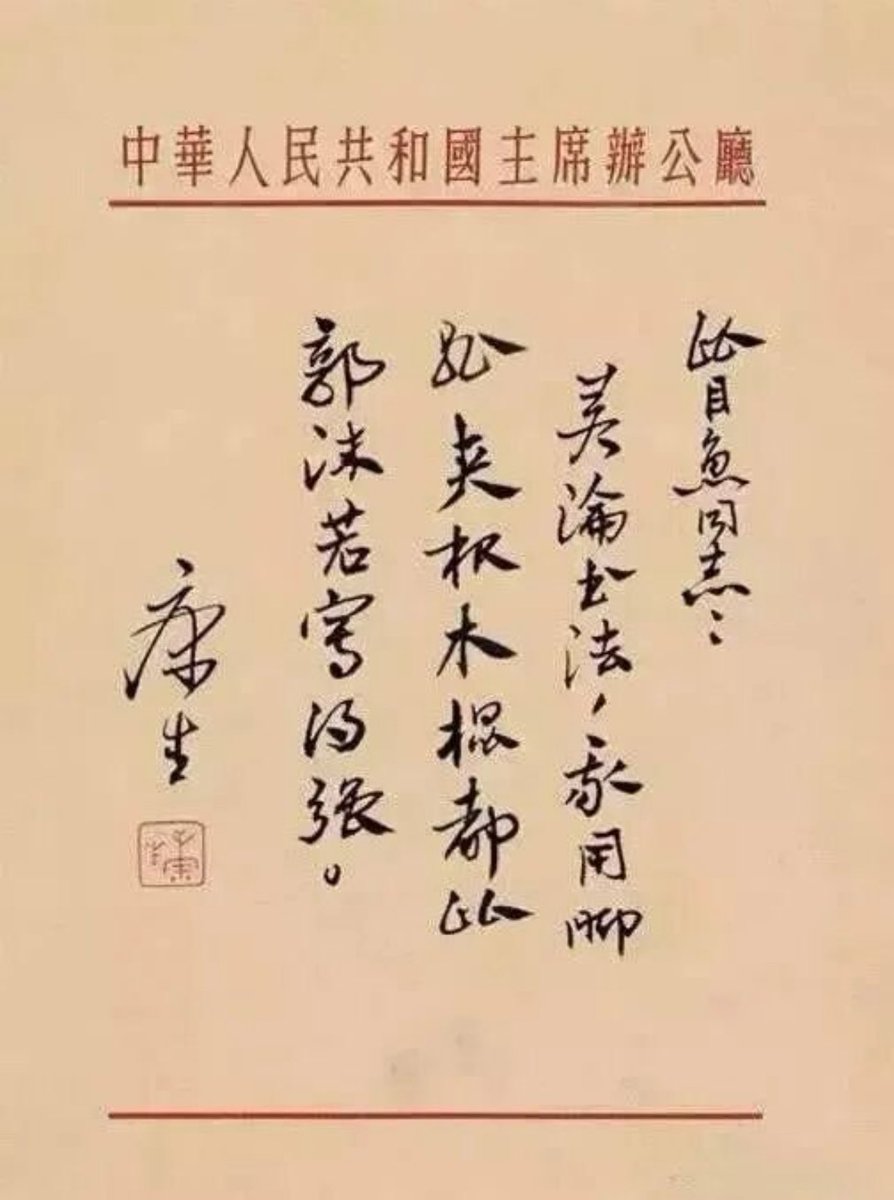 中華人民共和國主席辦公廳
比目魚同志:
論书法,我用脚
趾夹根木棍都比
郭沫若寫得強。
康生
康生